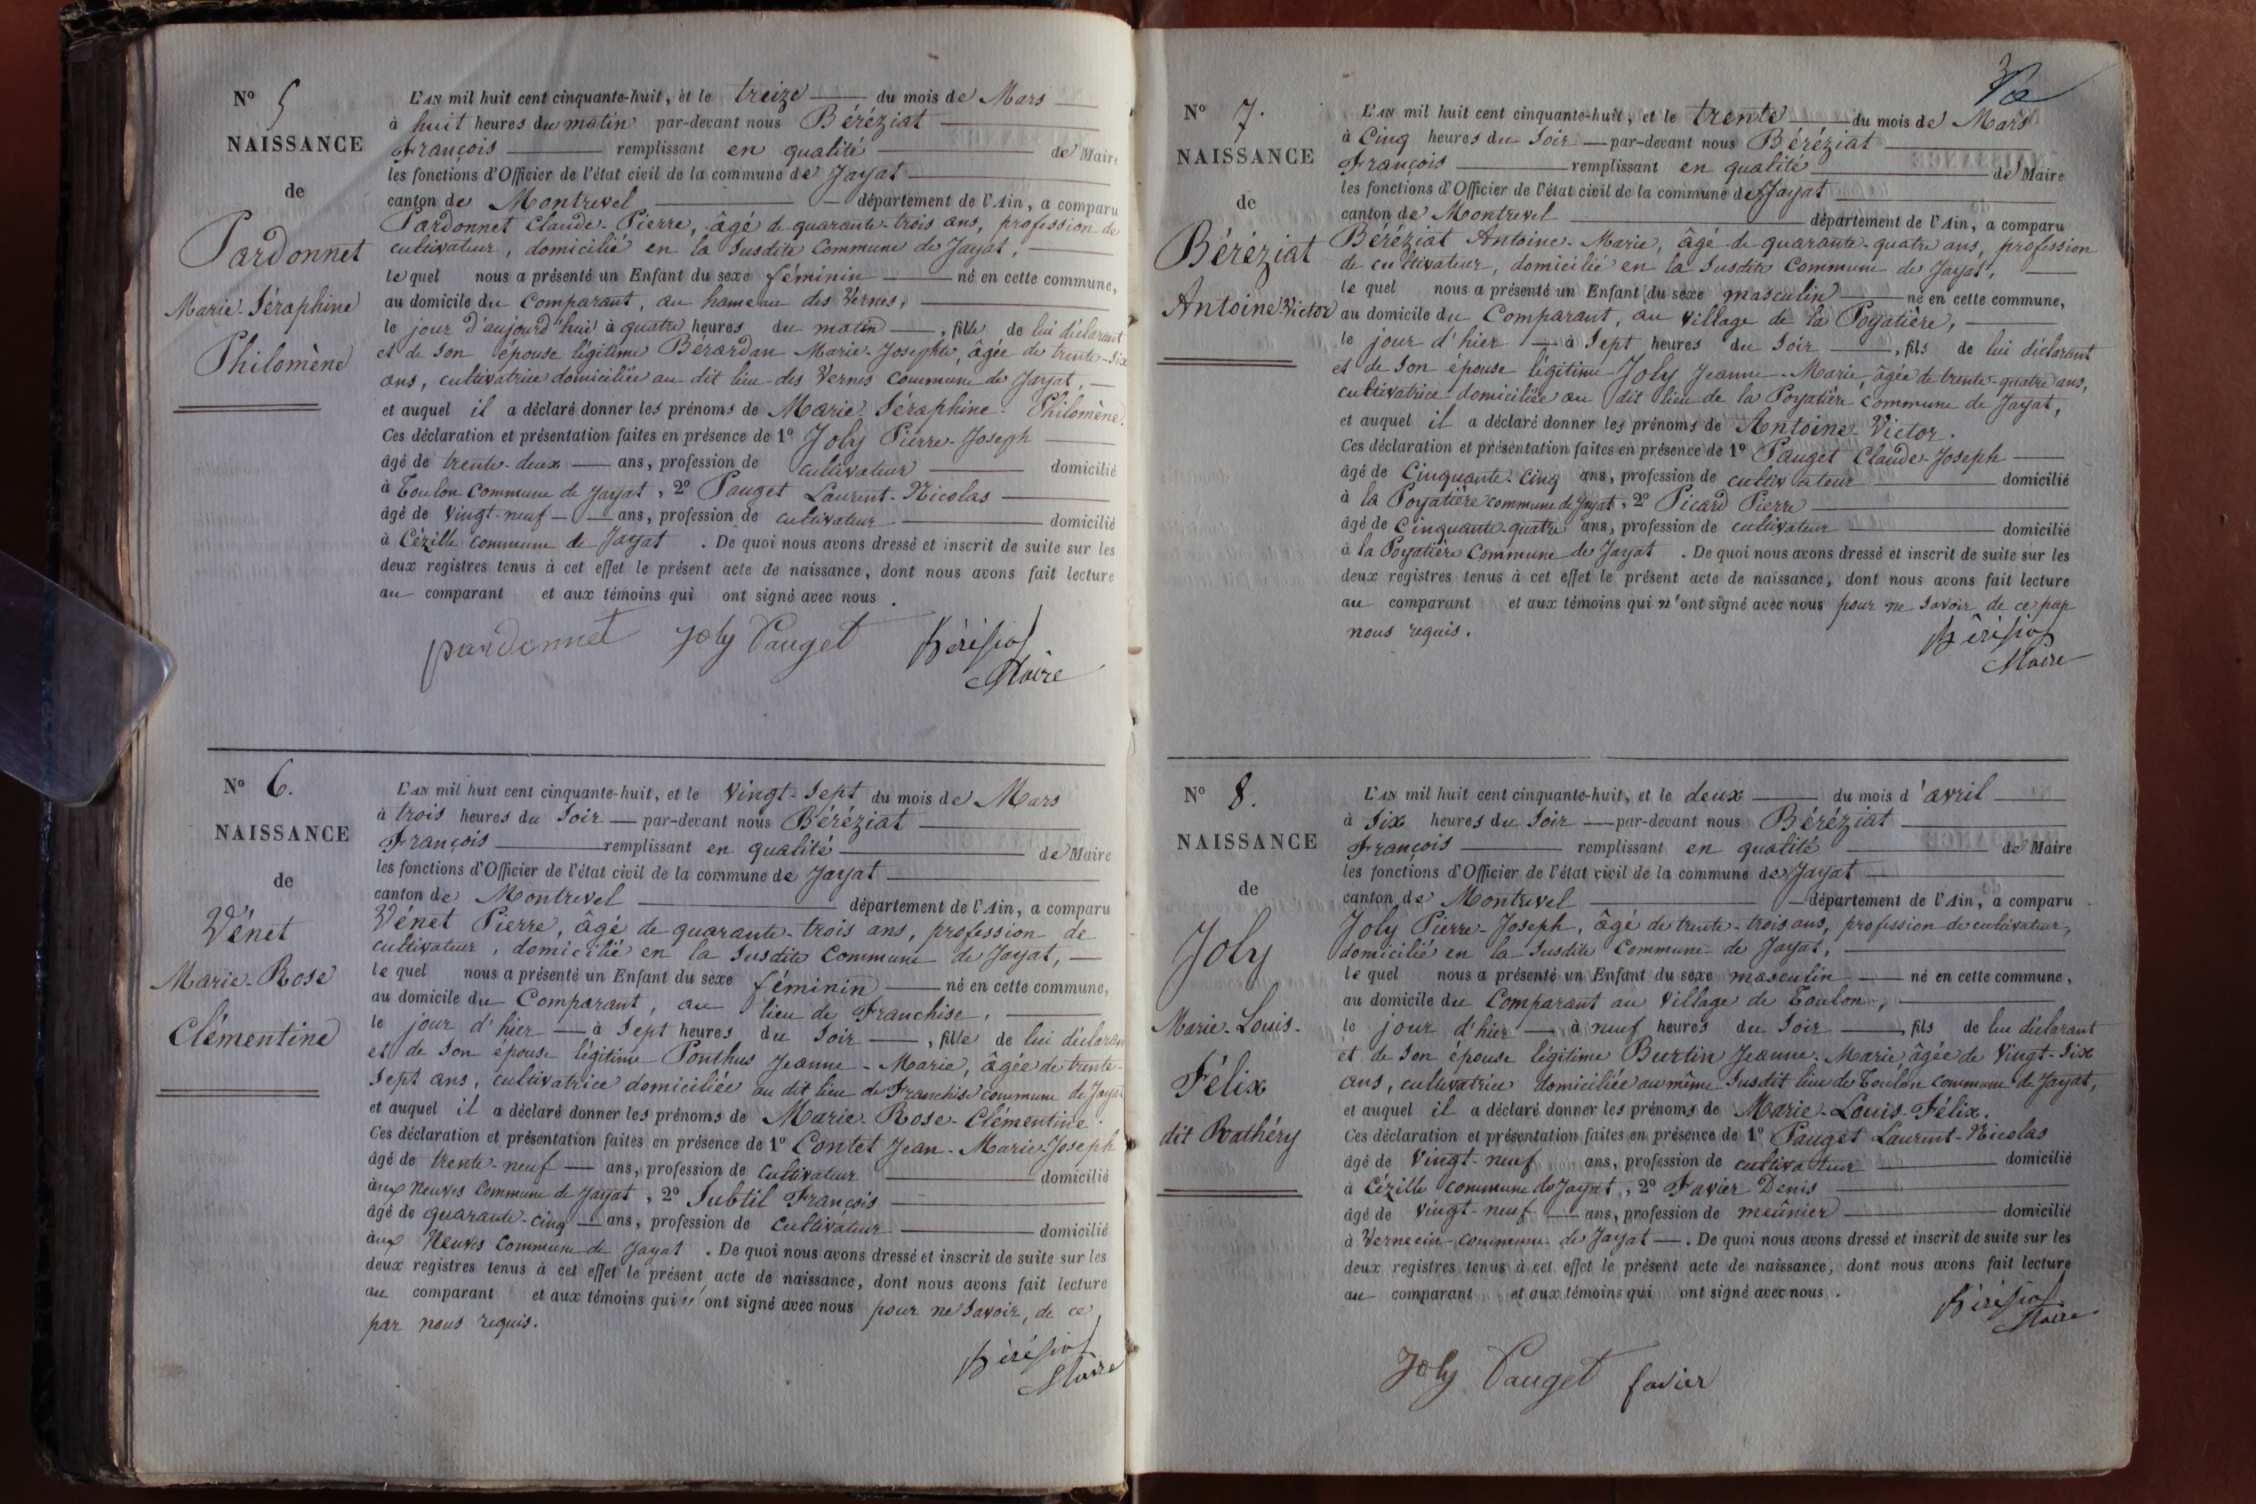 Nº 5
NAISSANCE
de
Pardonnet
Marie-Séraphine
Philomène
L'AN mil huit cent cinquante-huit, et le treize du mois de Mars
à huit heures du matin par-devant nous Béréziat
François remplissant en qualité de Maire
les fonctions d'Officier de l'état civil de la commune de Jayat
canton de Montrevel département de l'Ain, a comparu
Pardonnet Claude-Pierre, âgé de quarante-trois ans, profession de
cultivateur, domicilié en la susdite commune de Jayat,
le quel nous a présenté un Enfant du sexe féminin né en cette commune,
au domicile du comparant, au hameau des Vernes,
le jour d'aujourd'hui à quatre heures du matin, fille de lui déclarant
et de son épouse légitime Bérardan Marie-Josephte, âgée de trente-six
ans, cultivatrice domiciliée au dit lieu des Vernes commune de Jayat,
et auquel il a déclaré donner les prénoms de Marie-Séraphine-Philomène.
Ces déclaration et présentation faites en présence de 1º Joly Pierre-Joseph
âgé de trente-deux ans, profession de cultivateur domicilié
à Toulon commune de Jayat, 2º Pauget Laurent-Nicolas
âgé de vingt-neuf ans, profession de cultivateur domicilié
à Cézille commune de Jayat. De quoi nous avons dressé et inscrit de suite sur les
deux registres tenus à cet effet le présent acte de naissance, dont nous avons fait lecture
au comparant et aux témoins qui ont signé avec nous.
pardonnet Joly Pauget Béréziat
Maire
Nº 6.
NAISSANCE
de
Vénet
Marie-Rose
Clémentine
L'AN mil huit cent cinquante-huit, et le vingt-sept du mois de Mars
à trois heures du soir par-devant nous Béréziat
François remplissant en qualité de Maire
les fonctions d'Officier de l'état civil de la commune de Jayat
canton de Montrevel département de l'Ain, a comparu
Vénet Pierre, âgé de quarante-trois ans, profession de
cultivateur, domicilié en la susdite commune de Jayat,
le quel nous a présenté un Enfant du sexe féminin né en cette commune,
au domicile du comparant, au lieu de Franchise,
le jour d'hier à sept heures du soir, fille de lui déclarant
et de son épouse légitime Ponthus Jeanne-Marie, âgée de trente-
sept ans, cultivatrice domiciliée au dit lieu de Franchise commune de Jayat
et auquel il a déclaré donner les prénoms de Marie-Rose-Clémentine.
Ces déclaration et présentation faites en présence de 1º Contet Jean-Marie-Joseph
âgé de trente-neuf ans, profession de cultivateur domicilié
aux Neuves commune de Jayat, 2º Subtil François
âgé de quarante-cinq ans, profession de cultivateur domicilié
aux Neuves commune de Jayat. De quoi nous avons dressé et inscrit de suite sur les
deux registres tenus à cet effet le présent acte de naissance, dont nous avons fait lecture
au comparant et aux témoins qui n'ont signé avec nous pour ne savoir, de ce
par nous requis.
Béréziat
Maire
Nº 7.
NAISSANCE
de
Béréziat
Antoine-Victor
L'AN mil huit cent cinquante-huit, et le trente du mois de Mars
à cinq heures du soir par-devant nous Béréziat
François remplissant en qualité de Maire
les fonctions d'Officier de l'état civil de la commune de Jayat
canton de Montrevel département de l'Ain, a comparu
Béréziat Antoine-Marie, âgé de quarante-quatre ans, profession
de cultivateur, domicilié en la susdite commune de Jayat,
le quel nous a présenté un Enfant du sexe masculin né en cette commune,
au domicile du comparant, au village de la Poyatière,
le jour d'hier à sept heures du soir, fils de lui déclarant
et de son épouse légitime Joly Jeanne-Marie, âgée de trente-quatre ans,
cultivatrice domiciliée au dit lieu de la Poyatière commune de Jayat,
et auquel il a déclaré donner les prénoms de Antoine-Victor.
Ces déclaration et présentation faites en présence de 1º Pauget Claude-Joseph
âgé de cinquante-cinq ans, profession de cultivateur domicilié
à la Poyatière commune de Jayat, 2º Picard Pierre
âgé de cinquante-quatre ans, profession de cultivateur domicilié
à la Poyatière commune de Jayat. De quoi nous avons dressé et inscrit de suite sur les
deux registres tenus à cet effet le présent acte de naissance, dont nous avons fait lecture
au comparant et aux témoins qui n'ont signé avec nous pour ne savoir de ce par
nous requis.
Béréziat
Maire
Nº 8.
NAISSANCE
de
Joly
Marie-Louis-
Félix
dit Rathéry
L'AN mil huit cent cinquante-huit, et le deux du mois d'avril
à six heures du soir par-devant nous Béréziat
François remplissant en qualité de Maire
les fonctions d'Officier de l'état civil de la commune de Jayat
canton de Montrevel département de l'Ain, a comparu
Joly Pierre-Joseph, âgé de trente-trois ans, profession de cultivateur,
domicilié en la susdite commune de Jayat,
le quel nous a présenté un Enfant du sexe masculin né en cette commune,
au domicile du comparant au village de Toulon,
le jour d'hier à neuf heures du soir, fils de lui déclarant
et de son épouse légitime Burtin Jeanne-Marie âgée de vingt-six
ans, cultivatrice domiciliée au même susdit lieu de Toulon commune de Jayat,
et auquel il a déclaré donner les prénoms de Marie-Louis-Félix.
Ces déclaration et présentation faites en présence de 1º Pauget Laurent-Nicolas
âgé de vingt-neuf ans, profession de cultivateur domicilié
à Cézille commune de Jayat, 2º Favier Denis
âgé de vingt-neuf ans, profession de meûnier domicilié
à commune de Jayat. De quoi nous avons dressé et inscrit de suite sur les
deux registres tenus à cet effet le présent acte de naissance, dont nous avons fait lecture
au comparant et aux témoins qui ont signé avec nous.
Béréziat
Maire
Joly Pauget favier